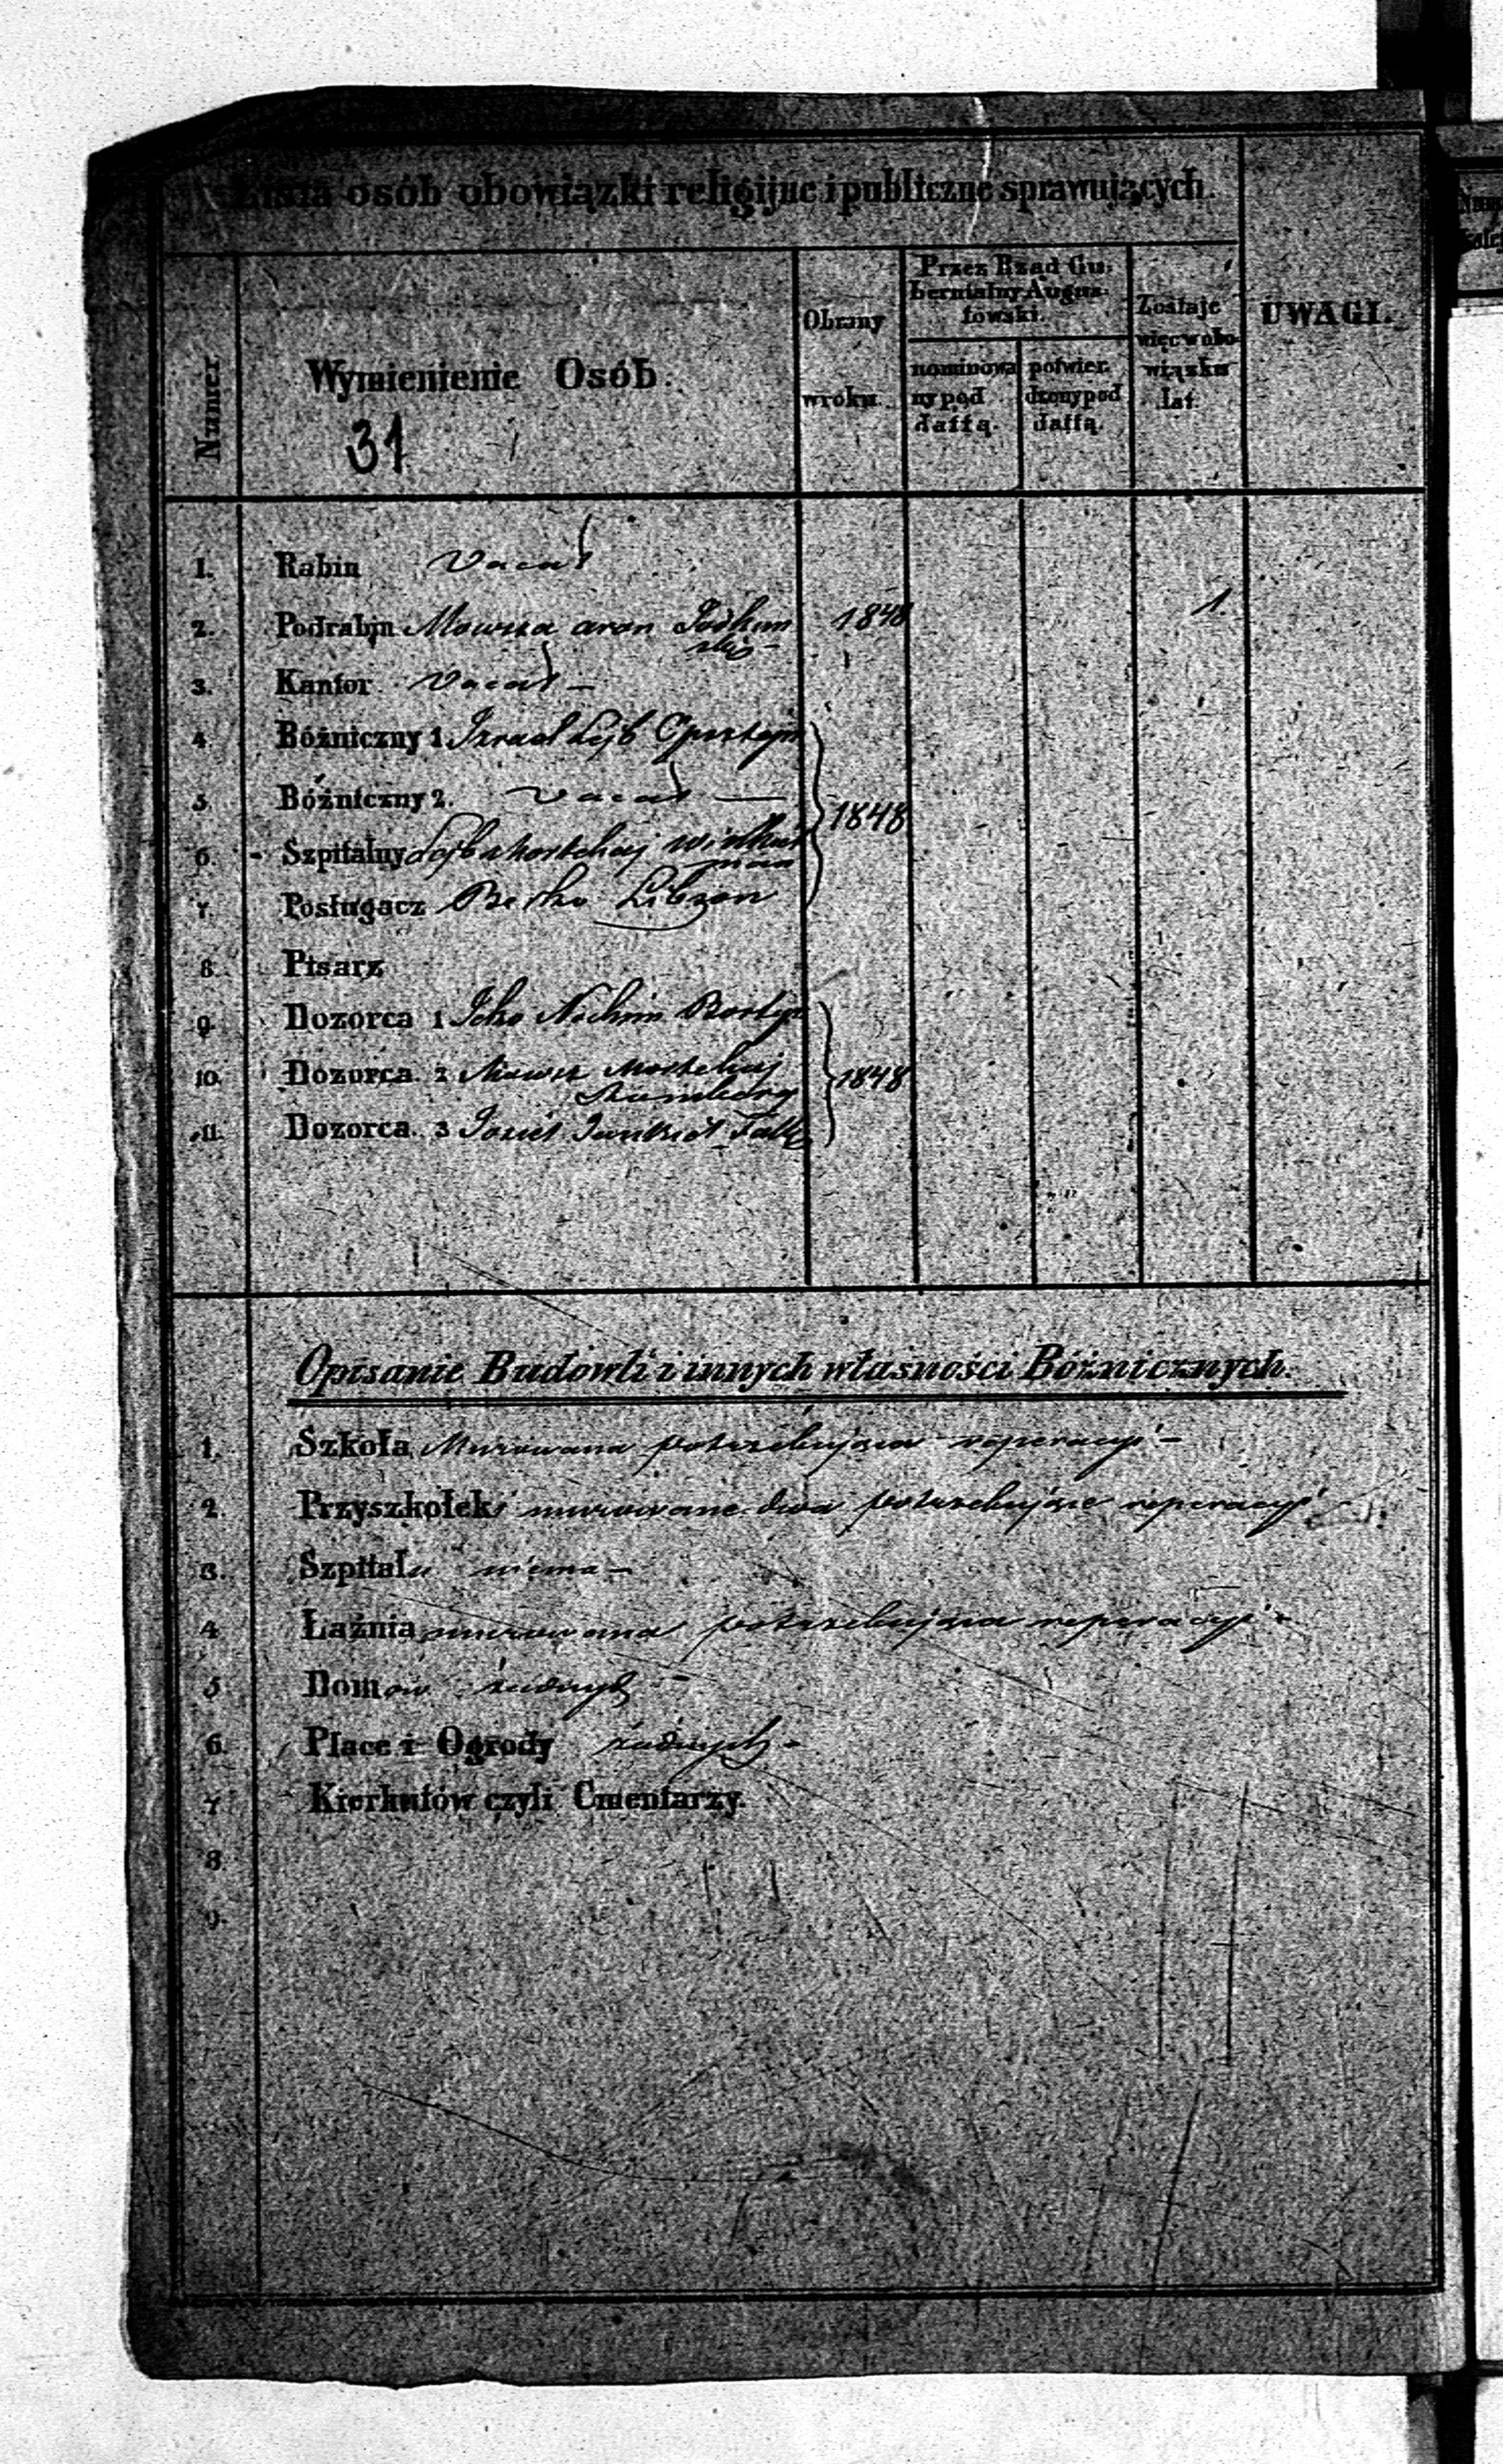 Lista osób obowiązki religijne i publiczne sprawujących.
Numer
Wymienienie Osób.
31
Obrany
w roku.
Przez Rząd Gu-
bernialny Augus-
towski.
nominowa
ny pod
dattą.
potwier.
dzony pod
dattą.
Zostaje
więc w obo-
wiązku
lat.
UWAGI.
1. Rabin Vacat
2. Podrabin Mowsza aron 1848 1.
3. Kantor Vacat —
4. Bóżniczny 1. Izrael Lejb
5. Bóżniczny 2. Vacat — 1848
6. Szpitalny Lejba Mortchaj
man
7. Posługacz Berko Libzon
8. Pisarz
9. Dozorca 1 Icko Nochim
10. Dozorca 2 Mowsz Mortchaj 1848
11. Dozorca 3
Opisanie Budowli i innych własności Bóżnicznych.
1. Szkoła Murowana potrzebująca reperacyi —
2. Przyszkołek murowane dwa potrzebujące reperacyi
3. Szpitalu niema —
4. Łaźnia murowana potrzebująca reperacyi —
5 Domow żadnych —
6. Place i Ogrody żadnych —
7 Kierkutów czyli Cmentarzy.
8.
9.